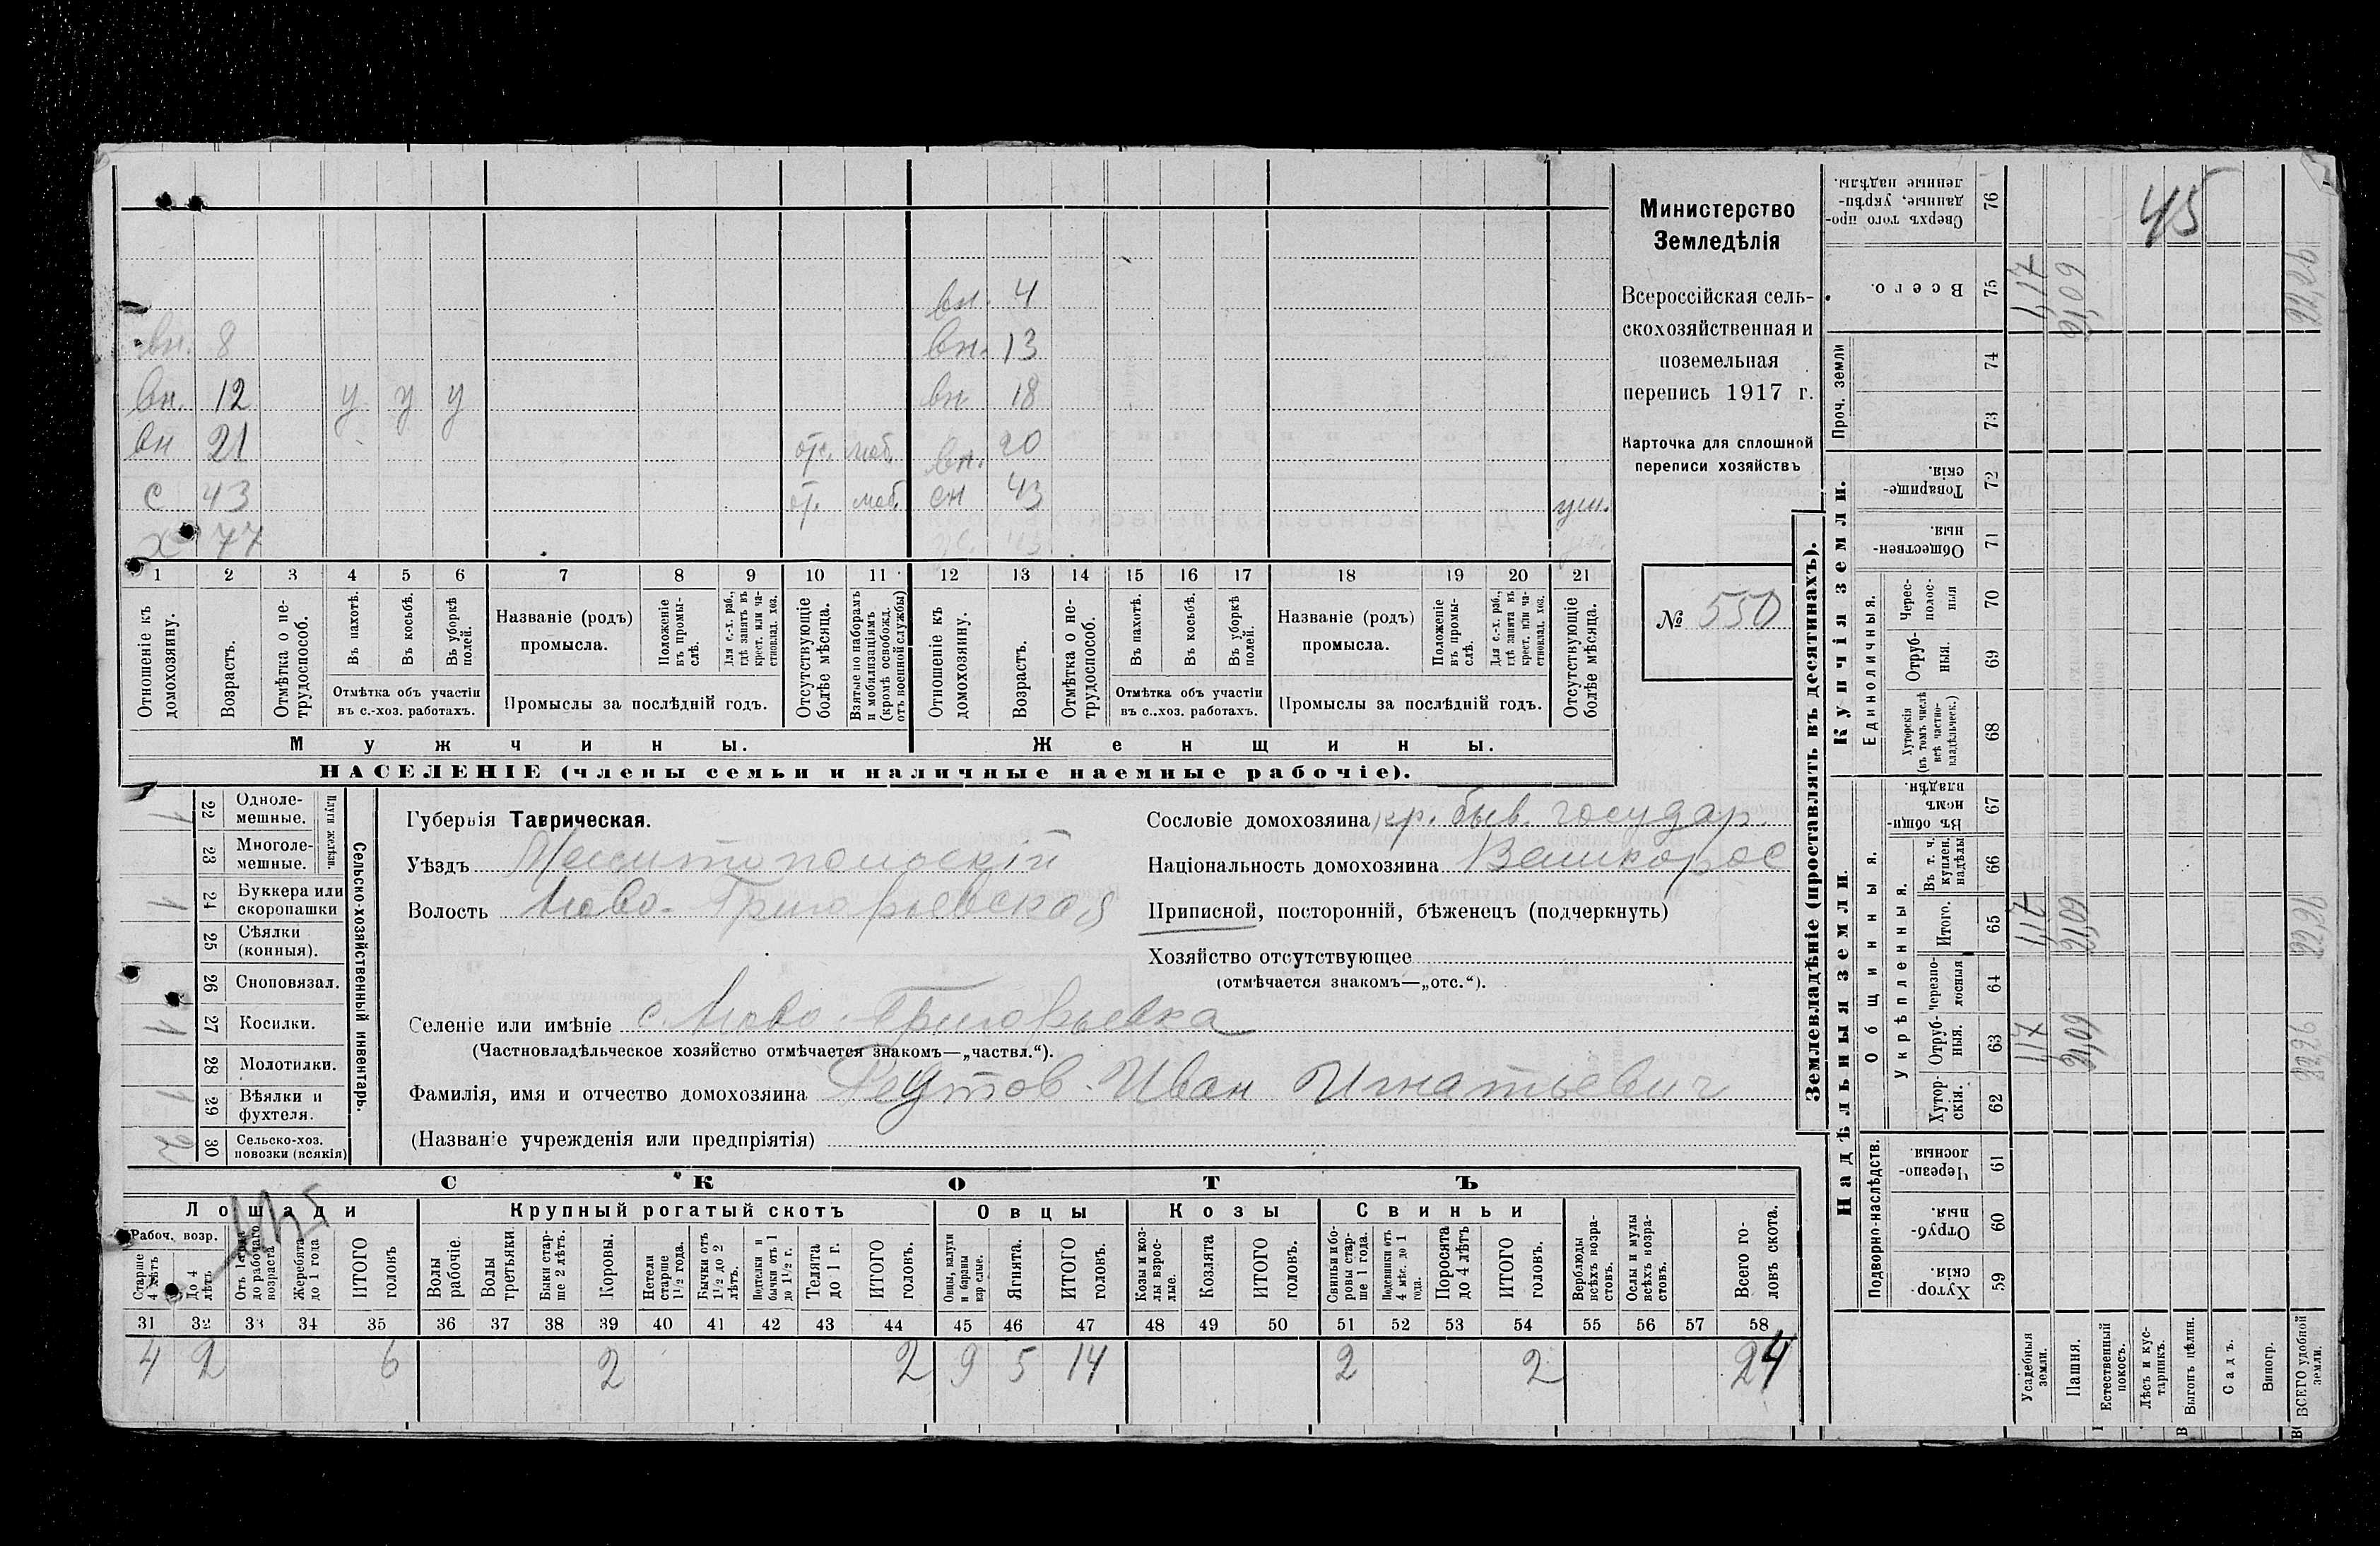 вн. 4
вн. 8 вн. 13
вн. 12 у у у вн 18
вн 21 отс. моб. вн. 20
с 43 от. моб. сн 43 ум.
х 77 43
1 2 3 4 5 6 7 8 9 10 11 12 13 14 15 16 17 18 19 20 21
Отношеніе къ домохозяину.
Возрастъ.
Отмѣтка о не-трудоспособ.
Въ пахотѣ.
Въ косьбѣ.
Въ уборкѣ полей.
Отмѣтка объ участіи
въ с.-хоз. работахъ.
Названіе (родъ)
промысла.
Положеніе въ промы-слѣ.
Для с.-х. раб., гдѣ занятъ въ крест. или ча-стновлад. хоз.
Промыслы за послѣдній годъ.
Отсутствующіе болѣе мѣсяца.
Взятые по наборамъ и мобилизаціямъ (кромѣ освобожд. отъ военной службы)
Отношеніе къ домохозяину.
Возрастъ.
Отмѣтка о не-трудоспособ.
Въ пахотѣ.
Въ косьбѣ.
Въ уборкѣ полей.
Отмѣтка объ участіи
въ с..хоз. работахъ.
Названіе (родъ)
промысла.
Положеніе въ промы-слѣ.
Для с.-х. раб., гдѣ занята въ крест. или ча-стновлад. хоз.
Промыслы за послѣдній годъ.
Отсутствующіе болѣе мѣсяца.
Мужчины.
Женщины.
НАСЕЛЕНІЕ (члены семьи и наличные наемные рабочіе).
Министерство
Земледѣлія
Всероссійская сель-
скохозяйственная и
поземельная
перепись 1917 г.
Карточка для сплошной
переписи хозяйствъ
№ 550
Сельско-хозяйственный инвентарь.
Плуги желѣзн.
1 22 Одноле-мешные.
23 Многоле-мешные.
1 24 Буккера или скоропашки
25 Сѣялки (конныя).
26 Сноповязал.
1 27 Косилки.
28 Молотилки.
1 29 Вѣялки и фухтеля.
2 30 Сельско-хоз. повозки (всякія)
Губернія Таврическая.
Уѣздъ Мелитопольскій
Волость Ново-Григорьевская
Сословіе домохозяина кр. быв. государ.
Національность домохозяина Великорос
Приписной, посторонній, бѣженецъ (подчеркнуть)
Хозяйство отсутствующее
(отмѣчается знакомъ—„отс.“).
Селеніе или имѣніе с. Ново-Григорьевка
(Частновладѣльческое хозяйство отмѣчается знакомъ—„частвл.“).
Фамилія, имя и отчество домохозяина Реутов Иван Игнатьевич
(Названіе учрежденія или предпріятія)
СКОТЪ
Лошади
Крупный рогатый скотъ
Овцы
Козы
Свиньи
Рабоч. возр.
Старше 4 лѣтъ
До 4 лѣтъ
Отъ 1 года до рабочаго возраста
Жеребята до 1 года
ИТОГО головъ
Волы рабочіе.
Волы третьяки
Быки стар-ше 2 лѣтъ.
Коровы.
Нетели старше 1½ года.
Бычки отъ 1½ до 2 лѣтъ.
Подтелки и бычки отъ 1 до 1½ г.
Телята до 1 г.
ИТОГО головъ.
Овцы, валухи и бараны взрослые.
Ягнята.
ИТОГО головъ.
Козы и коз-лы взрос-лые.
Козлята
ИТОГО головъ.
Свиньи и бо-ровы стар-ше 1 года.
Подсвинки отъ 4 мѣс. до 1 года.
Поросята до 4 лѣтъ
ИТОГО головъ.
Верблюды всѣхъ возра-стовъ.
Ослы и мулы всѣхъ возра-стовъ.
Всего го-ловъ скота.
31 32 33 34 35 36 37 38 39 40 41 42 43 44 45 46 47 48 49 50 51 52 53 54 55 56 57 58
4 2 6 2 2 9 5 14 2 2 24
Землевладѣніе (проставлять въ десятинахъ).
Купчія земли.
Надѣльныя земли.
Проч. земли
Единоличныя.
Общинныя.
Укрѣпленныя.
Подворно-наслѣдств.
Сверхъ того про-данные, укрѣп-ленные надѣлы. 76
45
Всего. 75
74
73
Товарище-скія. 72
Обществен-ныя. 71
Черес-полос-ныя 70
Отруб-ныя. 69
Хуторскія (въ томъ числѣ всѣ частно-владѣльческ.) 68
Въ общин-номъ владѣн. 67
Въ т. ч. куплен. надѣлы 66
Итого. 65
Черезпо-лосныя 64
Отруб-ныя. 63
Хутор-скія. 62
Черезпо-лосныя. 61
Отруб-ныя. 60
Хутор-скія. 59
Усадебныя земли.
Пашня.
Естественный покосъ.
Лѣсъ и кус-тарникъ.
Выгонъ цѣлин.
Садъ.
Виногр.
ВСЕГО удобной земли.